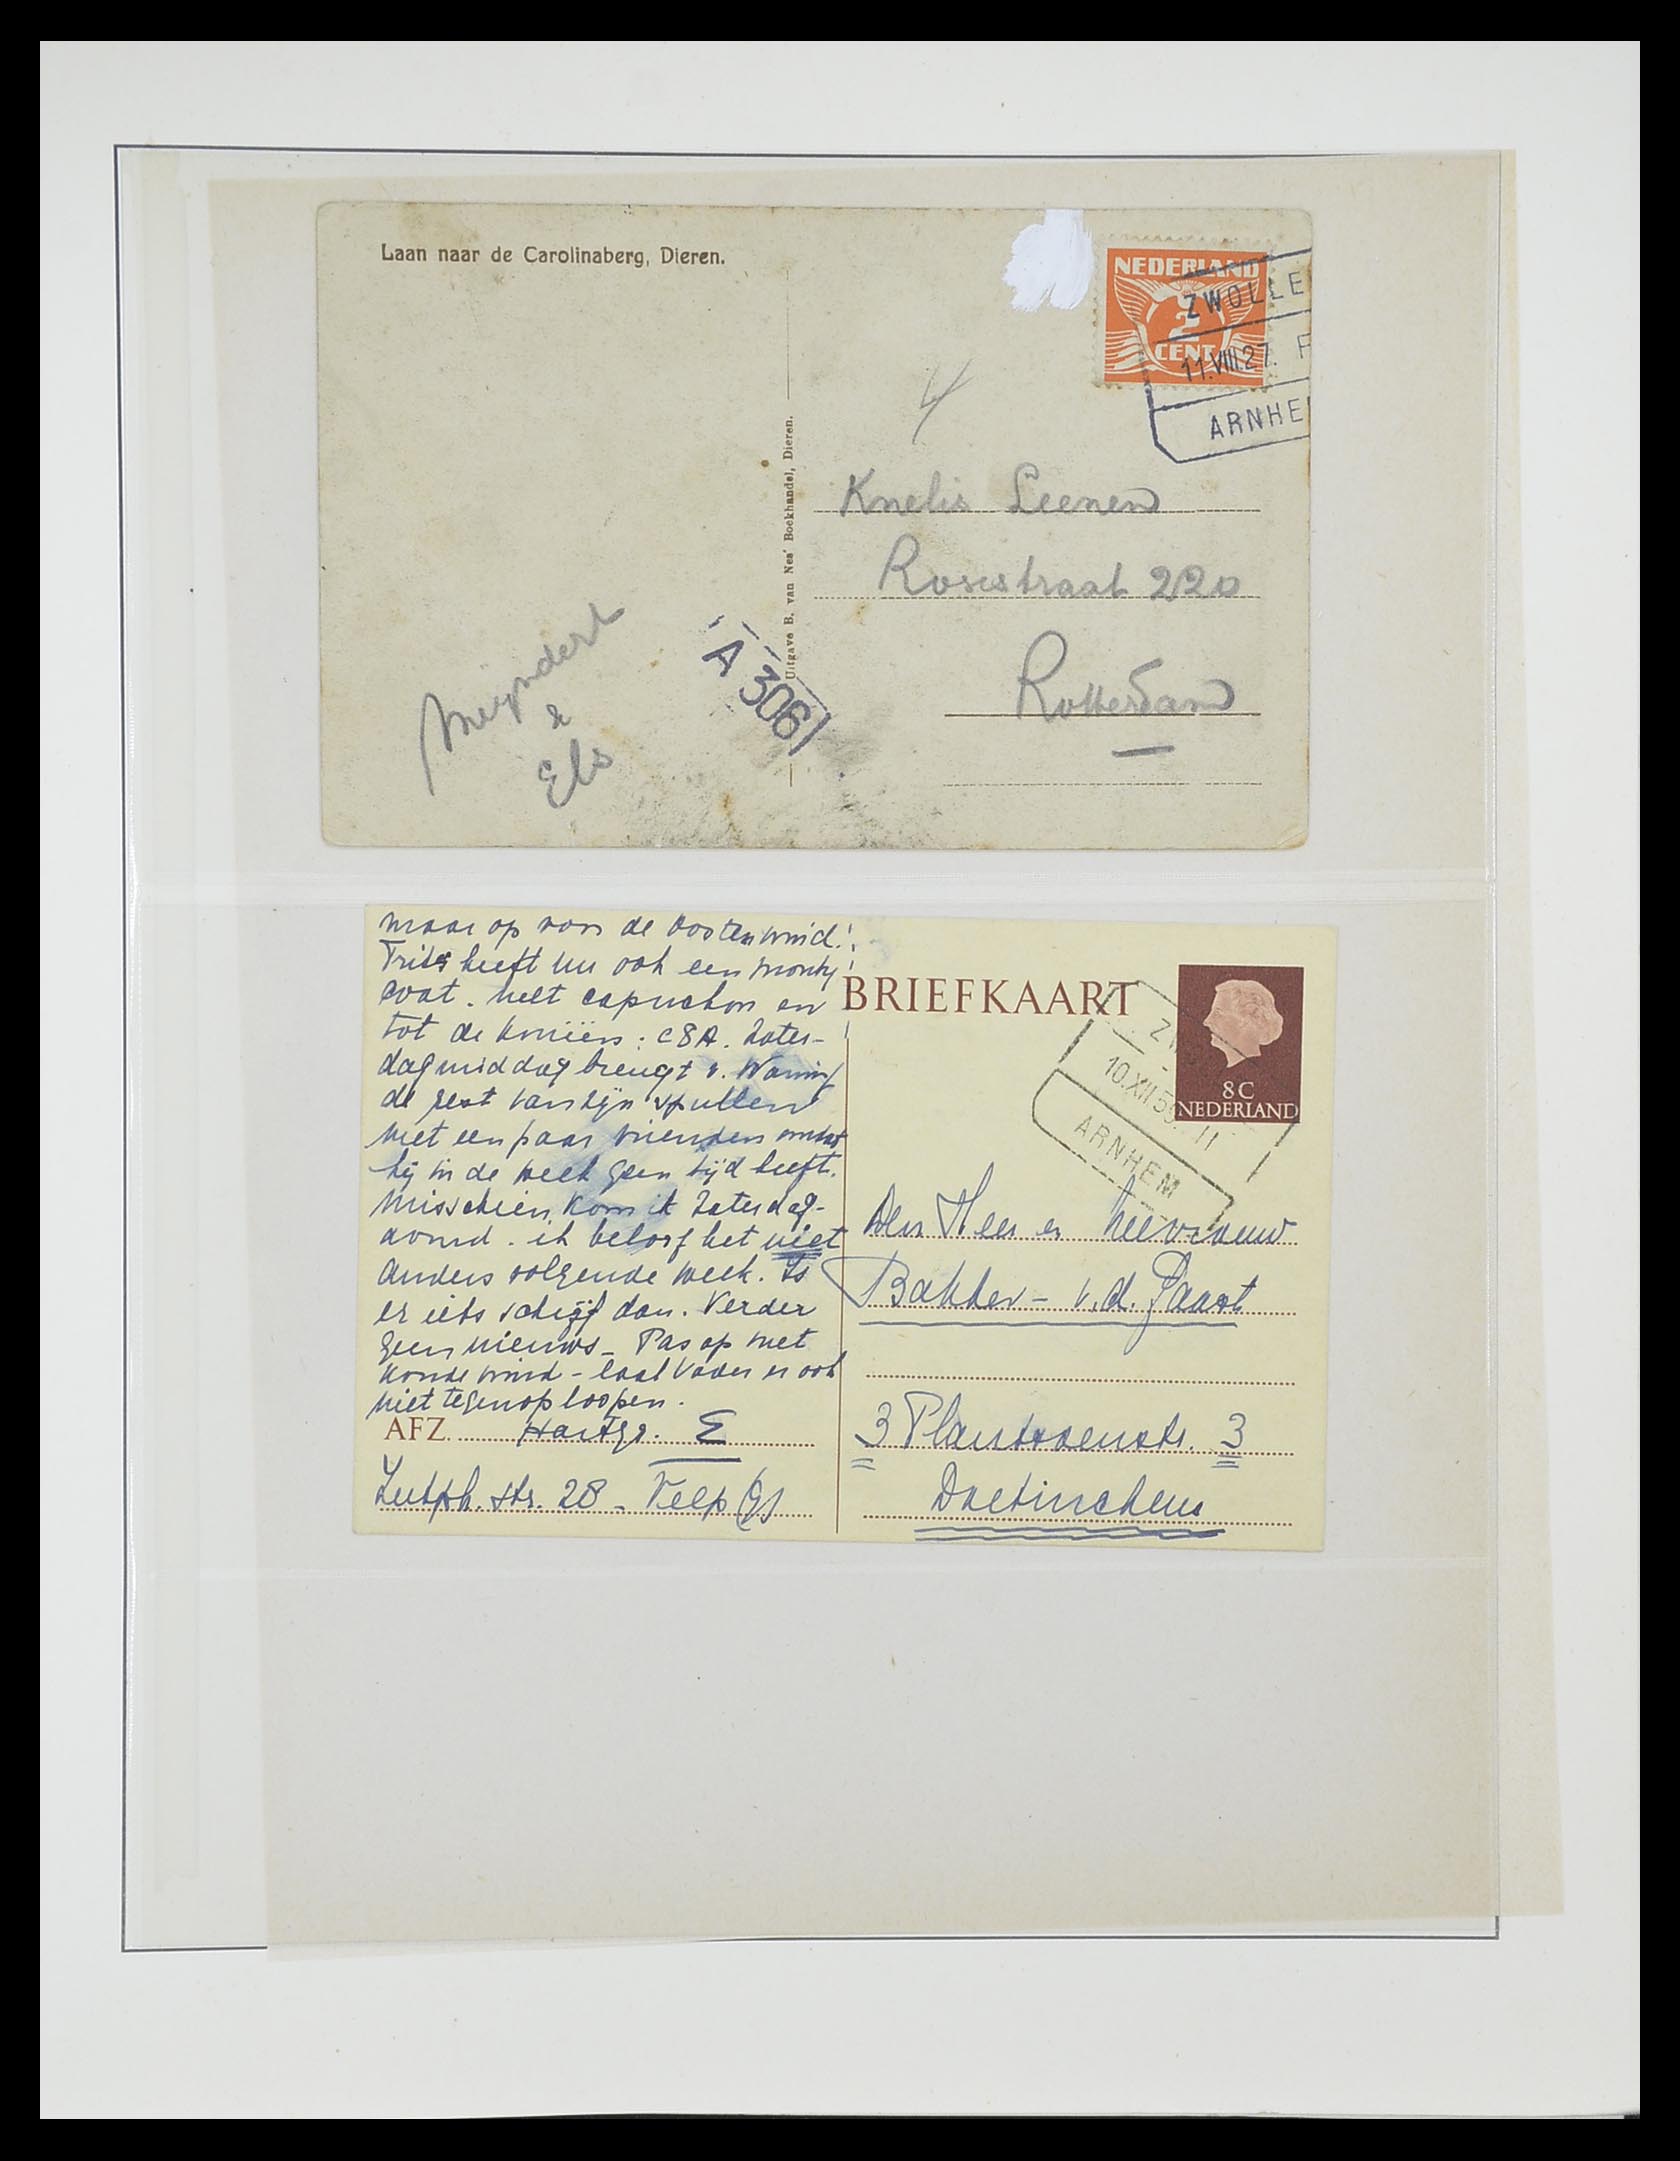 Laan naar de Carolinaberg, Dieren.
NEDERLAND
2
CENT
ZWOLLE
11.VIII.27. F
ARNHE
4
Uitgave B. van Nes' Boekhandel, Dieren.
Knelis Leenen
Rosestraat 220
Rotterdam
Meyndert
&
Els
A 306
maar op voor de Oostenwind!
heeft nu ook een monty
coat. met capuchon en
tot de knieën: C&A. Zater-
dagmiddag brengt v.
de rest van zijn spullen
met een paar vrienden omdat
hij in de week geen tijd heeft.
Misschien kom ik Zaterdag-
avond. ik beloof het niet
Anders volgende week. Is
er iets schrijf dan. Verder
geen nieuws - Pas op met
koude wind - laat Vader er ook
niet tegenop loopen.
AFZ. Hartgr. E
Zutph. str. 28 - Velp (G)
BRIEFKAART
8C
NEDERLAND
Z
10.XII.5 II
ARNHEM
Den Heer en Mevrouw
Bakker - v.d. Gaast
3 Plantsoenstr. 3
Doetinchem